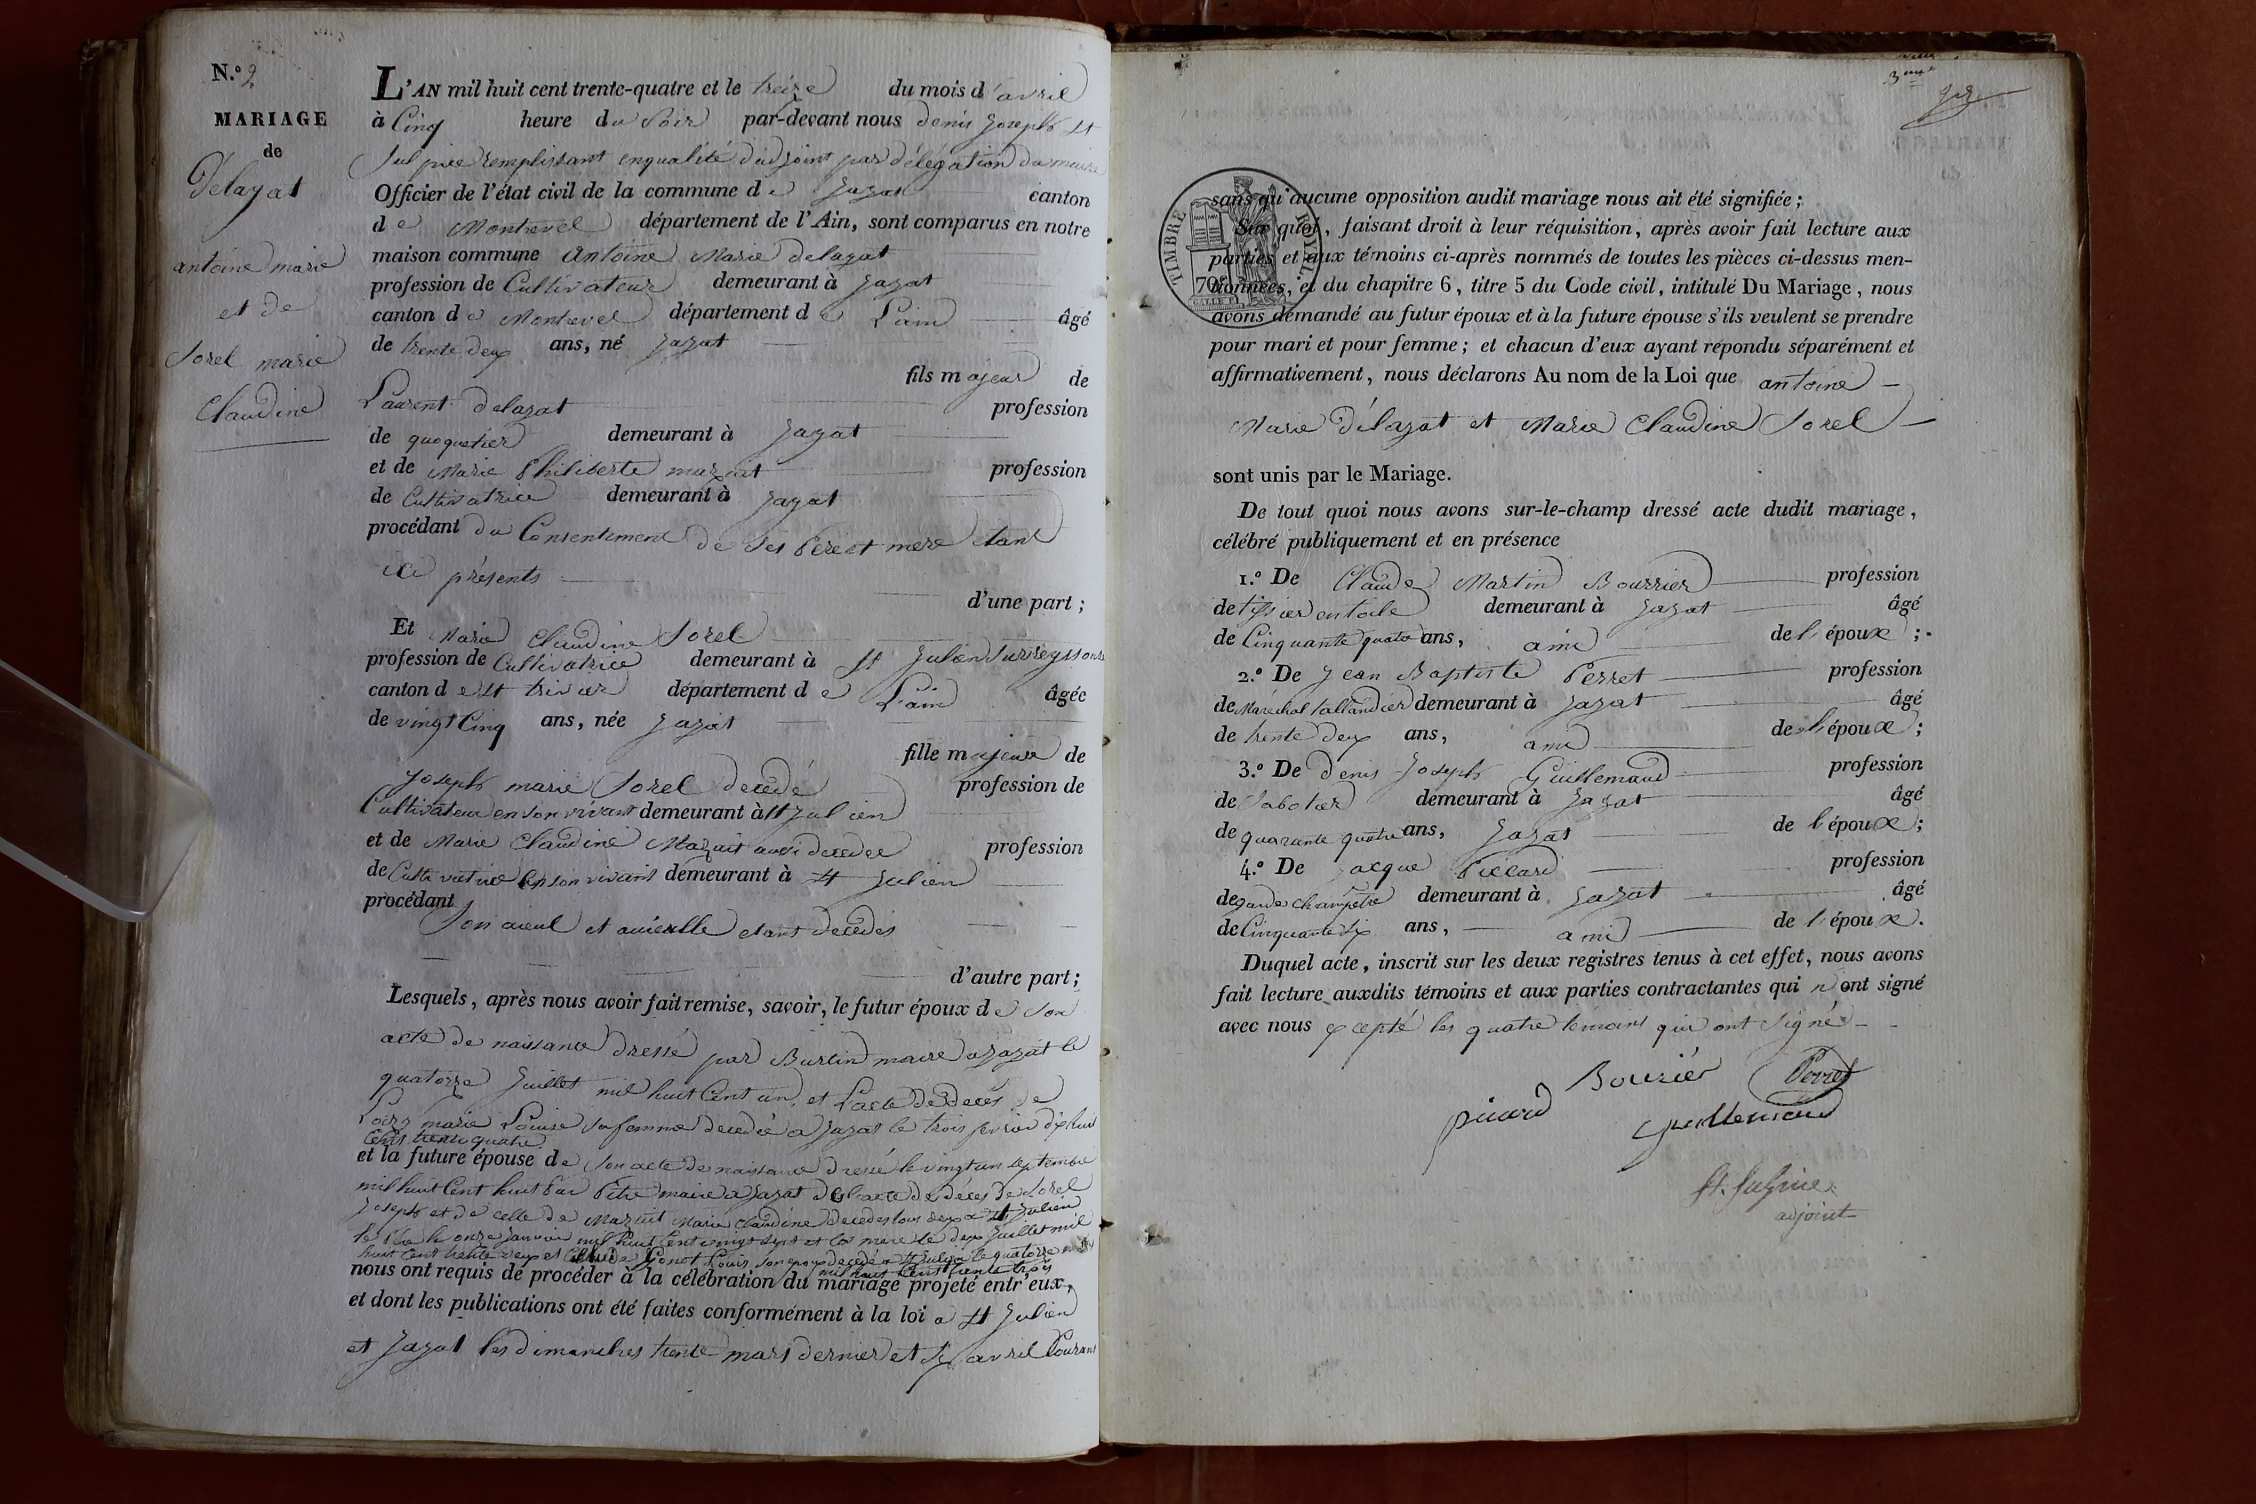 N.º 2
MARIAGE
de
Délayat
antoine marie
et de
Sorel marie
Claudine
L'AN mil huit cent trente-quatre et le treize du mois d'avril
à Cinq heure du Soir par-devant nous denis Joseph St
Sulpice remplissant enqualité d'adjoint par délégation du maire
Officier de l'état civil de la commune de Jayat canton
de Montrevel département de l'Ain, sont comparus en notre
maison commune Antoine Marie delayat
profession de Cultivateur demeurant à Jayat
canton de Montrevel département de L'ain âgé
de trente deux ans, né Jayat
fils majeur de
Laurent delayat profession
de quoquetier demeurant à Jayat
et de Marie Philiberte mazuit profession
de Cultivatrice demeurant à Jayat
procédant du Consentement de Ses Père et mère étant
ici présents
d'une part ;
Et Marie Claudine Sorel
profession de Cultivatrice demeurant à St Julien Surreyssouze
canton de St trivier département de L'ain âgée
de vingt Cinq ans, née Jayat
fille majeure de
Joseph marie Sorel decédé profession de
Cultivateur en son vivant demeurant à St Julien
et de Marie Claudine Mazuit aussi decedee profession
de Cultivatrice en son vivant demeurant à St Julien
procédant
Son aieul et aieulle etant decédés
d'autre part ;
Lesquels, après nous avoir fait remise, savoir, le futur époux de Son
acte de naissance dressé par Burtin maire a Jayat le
quatorze Juillet mil huit Cent un, et L'acte de deces de
marie Louise Sa femme decedée a Jayat le trois fevrier dix huit
Cents trente quatre
et la future épouse de Son acte de naissance dressé le vingt un Septembre
mil huit Cent huit Par Pitre maire a Jayat de l'acte de déces de Sorel
Joseph et de celle de Mazuit Marie Claudine decedes tous deux a St Julien
le onze Janvier mil huit Cent vingt Sept et la mere le deux Juillet mil
huit Cent trente deux et Louis Son epoux decedé a St Julien le quatorze
mil huit Cent trente trois
nous ont requis de procéder à la célébration du mariage projeté entr'eux,
et dont les publications ont été faites conformément à la loi a St Julien
et Jayat les dimanches trente mars dernier et Six avril Courant
3me
TIMBRE ROYAL
70c
sans qu'aucune opposition audit mariage nous ait été signifiée ;
Sur quoi, faisant droit à leur réquisition, après avoir fait lecture aux
parties et aux témoins ci-après nommés de toutes les pièces ci-dessus men-
tionnées, et du chapitre 6, titre 5 du Code civil, intitulé Du Mariage, nous
avons demandé au futur époux et à la future épouse s'ils veulent se prendre
pour mari et pour femme ; et chacun d'eux ayant répondu séparément et
affirmativement, nous déclarons Au nom de la Loi que antoine
Marie délayat et Marie Claudine Sorel
sont unis par le Mariage.
De tout quoi nous avons sur-le-champ dressé acte dudit mariage,
célébré publiquement et en présence
1.º De Claude Martin Bourrier profession
de tissier en toile demeurant à Jayat âgé
de Cinquante quatre ans, ami de l'époux ;
2.º De Jean Baptiste Perret profession
de Maréchal tallandier demeurant à Jayat âgé
de trente deux ans, ami de l'époux ;
3.º De denis Joseph Guillemaud profession
de Sabotier demeurant à Jayat âgé
de quarante quatre ans, Jayat de l'époux ;
4.º De Jacque Piccard profession
de garde champêtre demeurant à Jayat âgé
de Cinquante Six ans, ami de l'époux.
Duquel acte, inscrit sur les deux registres tenus à cet effet, nous avons
fait lecture auxdits témoins et aux parties contractantes qui n'ont signé
avec nous excepté les quatre temoins qui ont Signé
Bouriér Perret
picard Guillemaud
St. Sulpice
adjoint